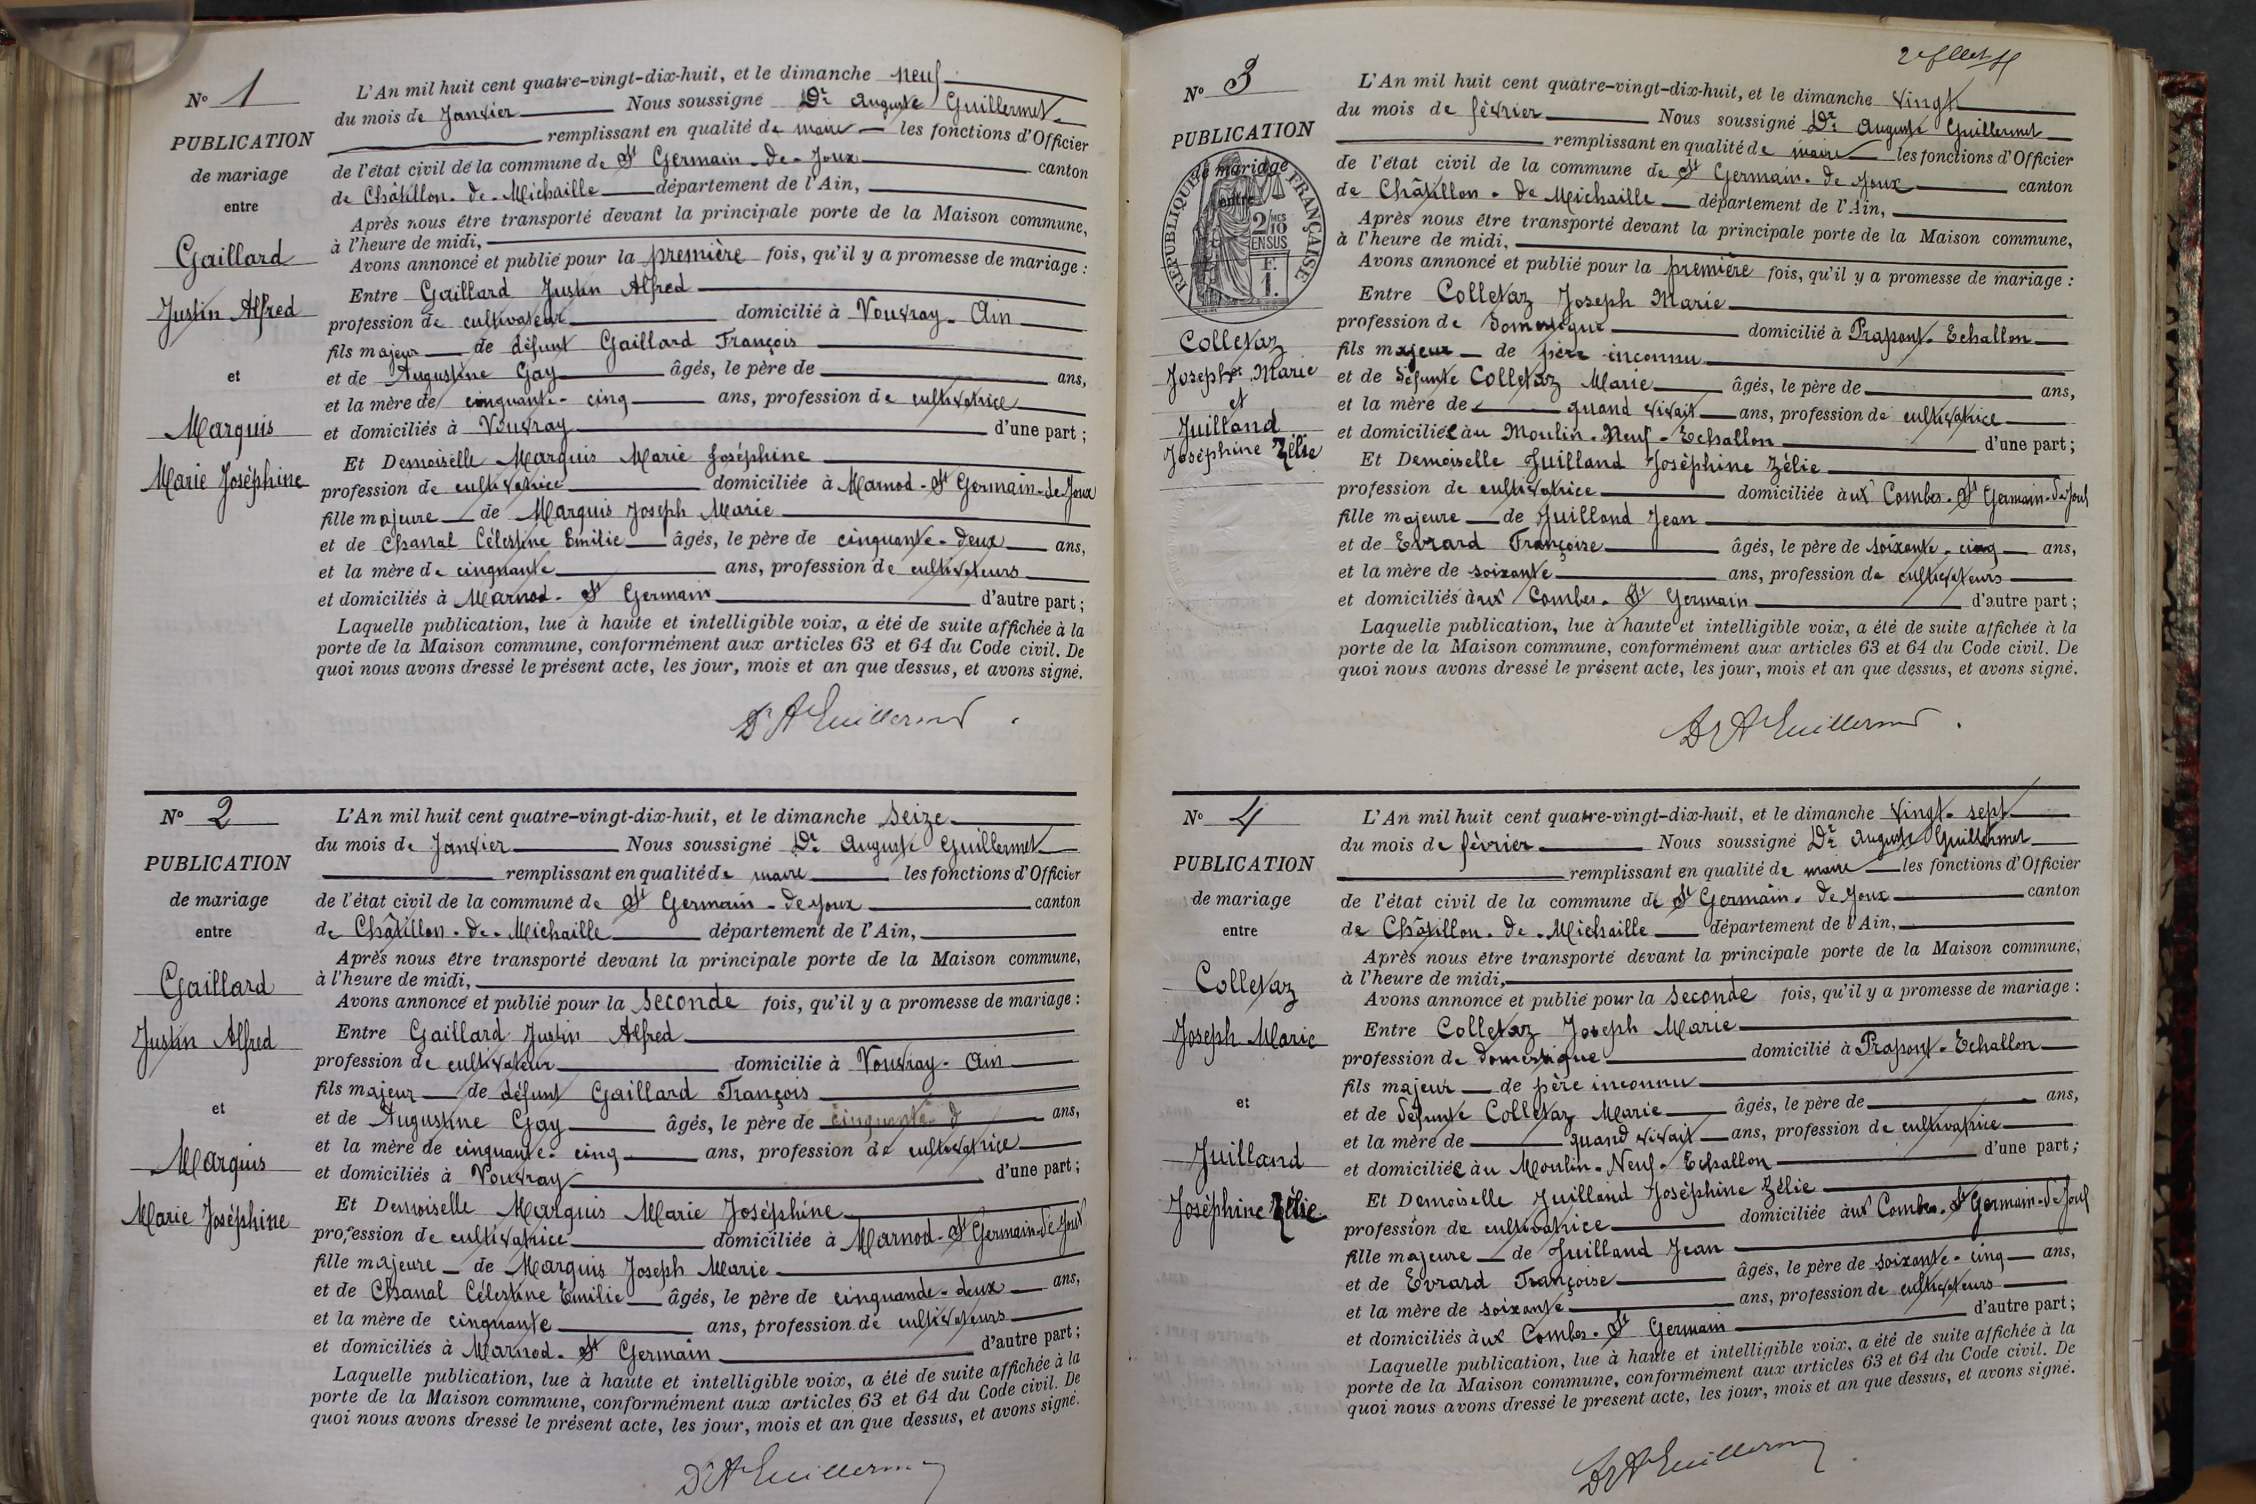 N° 1
PUBLICATION
de mariage
entre
Gaillard
Justin Alfred
et
Marquis
Marie Joséphine
L'An mil huit cent quatre-vingt-dix-huit, et le dimanche neuf
du mois de Janvier Nous soussigné Dr Auguste Guillermet
remplissant en qualité de maire les fonctions d'Officier
de l'état civil de la commune de St Germain-de-Joux canton
de Châtillon-de-Michaille département de l'Ain,
Après nous être transporté devant la principale porte de la Maison commune,
à l'heure de midi,
Avons annoncé et publié pour la première fois, qu'il y a promesse de mariage :
Entre Gaillard Justin Alfred
profession de cultivateur domicilié à Vouvray-Ain
fils majeur de défunt Gaillard François
et de Augustine Gay âgés, le père de ans,
et la mère de cinquante-cinq ans, profession de cultivatrice
et domiciliés à Vouvray d'une part ;
Et Demoiselle Marquis Marie Joséphine
profession de cultivatrice domiciliée à Marnod-St Germain-de-Joux
fille majeure de Marquis Joseph Marie
et de Chanal Célestine Emilie âgés, le père de cinquante-deux ans,
et la mère de cinquante ans, profession de cultivateurs
et domiciliés à Marnod-St Germain d'autre part ;
Laquelle publication, lue à haute et intelligible voix, a été de suite affichée à la
porte de la Maison commune, conformément aux articles 63 et 64 du Code civil. De
quoi nous avons dressé le présent acte, les jour, mois et an que dessus, et avons signé.
Dr A Guillermet
N° 2
PUBLICATION
de mariage
entre
Gaillard
Justin Alfred
et
Marquis
Marie Joséphine
L'An mil huit cent quatre-vingt-dix-huit, et le dimanche seize
du mois de Janvier Nous soussigné Dr Auguste Guillermet
remplissant en qualité de maire les fonctions d'Officier
de l'état civil de la commune de St Germain-de Joux canton
de Châtillon-de-Michaille département de l'Ain,
Après nous être transporté devant la principale porte de la Maison commune,
à l'heure de midi,
Avons annoncé et publié pour la seconde fois, qu'il y a promesse de mariage :
Entre Gaillard Justin Alfred
profession de cultivateur domicilié à Vouvray-Ain
fils majeur de défunt Gaillard François
et de Augustine Gay âgés, le père de cinquante-d ans,
et la mère de cinquante-cinq ans, profession de cultivatrice
et domiciliés à Vouvray d'une part ;
Et Demoiselle Marquis Marie Joséphine
profession de cultivatrice domiciliée à Marnod-St Germain-de Joux
fille majeure de Marquis Joseph Marie
et de Chanal Célestine Emilie âgés, le père de cinquande-deux ans,
et la mère de cinquante ans, profession de cultivateurs
et domiciliés à Marnod-St Germain d'autre part ;
Laquelle publication, lue à haute et intelligible voix, a été de suite affichée à la
porte de la Maison commune, conformément aux articles 63 et 64 du Code civil. De
quoi nous avons dressé le présent acte, les jour, mois et an que dessus, et avons signé.
Dr A Guillermet
N° 3
PUBLICATION
de mariage
entre
RÉPUBLIQUE FRANÇAISE
2/10 MES
EN SUS
F.
1.
Colletaz
Joseph Marie
et
Juilland
Joséphine Zélie
L'An mil huit cent quatre-vingt-dix-huit, et le dimanche vingt
du mois de février Nous soussigné Dr Auguste Guillermet
remplissant en qualité de maire les fonctions d'Officier
de l'état civil de la commune de St Germain-de Joux canton
de Châtillon-de Michaille département de l'Ain,
Après nous être transporté devant la principale porte de la Maison commune,
à l'heure de midi,
Avons annoncé et publié pour la première fois, qu'il y a promesse de mariage :
Entre Colletaz Joseph Marie
profession de domestique domicilié à Prapont-Echallon
fils majeur de père inconnu
et de défunte Colletaz Marie âgés, le père de ans,
et la mère de quand vivait ans, profession de cultivatrice
et domiciliée au Moulin-Neuf-Echallon d'une part ;
Et Demoiselle Juilland Joséphine Zélie
profession de cultivatrice domiciliée aux Combes-St Germain-de Joux
fille majeure de Juilland Jean
et de Evrard Françoise âgés, le père de soixante-cinq ans,
et la mère de soixante ans, profession de cultivateurs
et domiciliés aux Combes-St Germain d'autre part ;
Laquelle publication, lue à haute et intelligible voix, a été de suite affichée à la
porte de la Maison commune, conformément aux articles 63 et 64 du Code civil. De
quoi nous avons dressé le présent acte, les jour, mois et an que dessus, et avons signé.
Dr A Guillermet
N° 4
PUBLICATION
de mariage
entre
Colletaz
Joseph Marie
et
Juilland
Joséphine Zélie
L'An mil huit cent quatre-vingt-dix-huit, et le dimanche vingt-sept
du mois de février Nous soussigné Dr Auguste Guillermet
remplissant en qualité de maire les fonctions d'Officier
de l'état civil de la commune de St Germain-de Joux canton
de Châtillon-de-Michaille département de l'Ain,
Après nous être transporté devant la principale porte de la Maison commune,
à l'heure de midi,
Avons annoncé et publié pour la seconde fois, qu'il y a promesse de mariage :
Entre Colletaz Joseph Marie
profession de domestique domicilié à Prapont-Echallon
fils majeur de père inconnu
et de défunte Colletaz Marie âgés, le père de ans,
et la mère de quand vivait ans, profession de cultivatrice
et domiciliée au Moulin-Neuf-Echallon d'une part ;
Et Demoiselle Juilland Joséphine Zélie
profession de cultivatrice domiciliée aux Combes-St Germain-de Joux
fille majeure de Juilland Jean
et de Evrard Françoise âgés, le père de soixante-cinq ans,
et la mère de soixante ans, profession de cultivateurs
et domiciliés aux Combes-St Germain d'autre part ;
Laquelle publication, lue à haute et intelligible voix, a été de suite affichée à la
porte de la Maison commune, conformément aux articles 63 et 64 du Code civil. De
quoi nous avons dressé le présent acte, les jour, mois et an que dessus, et avons signé.
Dr A Guillermet